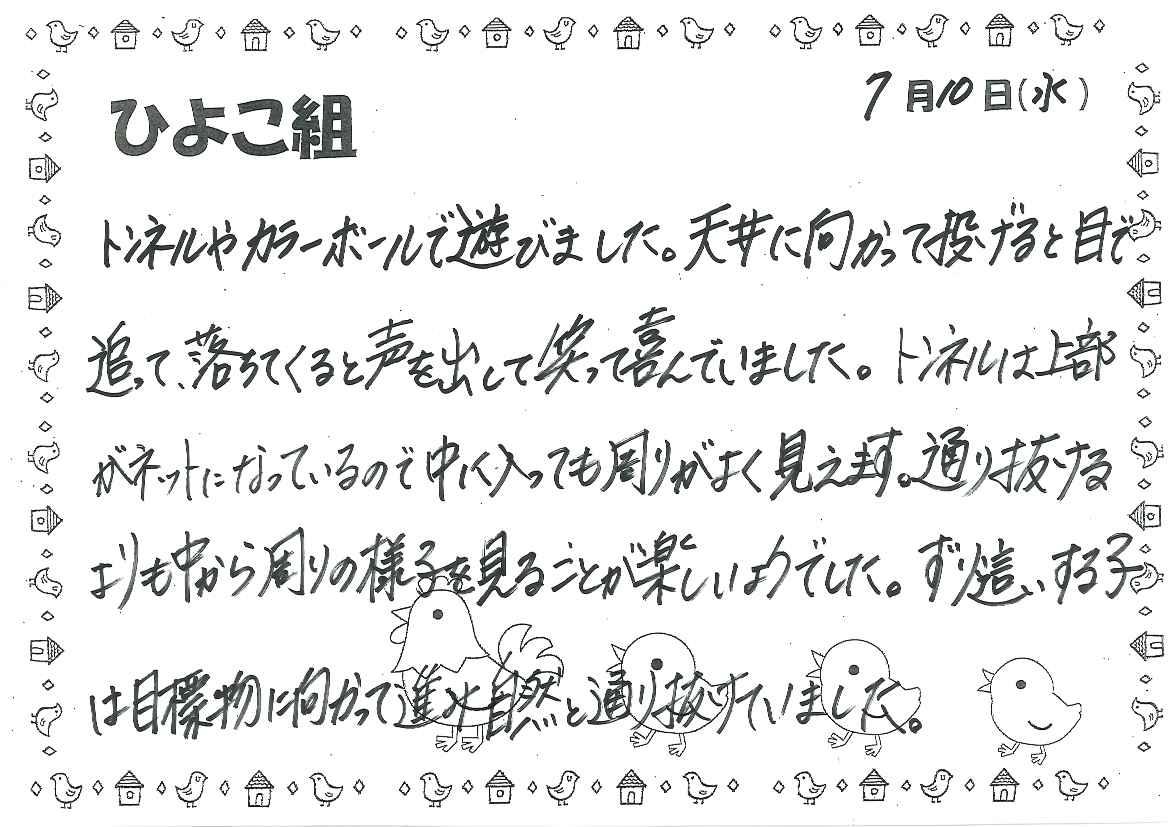 ひよこ組
7月10日(水)
トンネルやカラーボールで遊びました。天井に向かって投げると目で
追って、落ちてくると声を出して笑って喜んでいました。トンネルは上部
がネットになっているので中に入っても周りがよく見えます。通り抜ける
よりも中から周りの様子を見ることが楽しいようでした。ずり這いする子
は目標物に向かって進み自然と通り抜けていました。